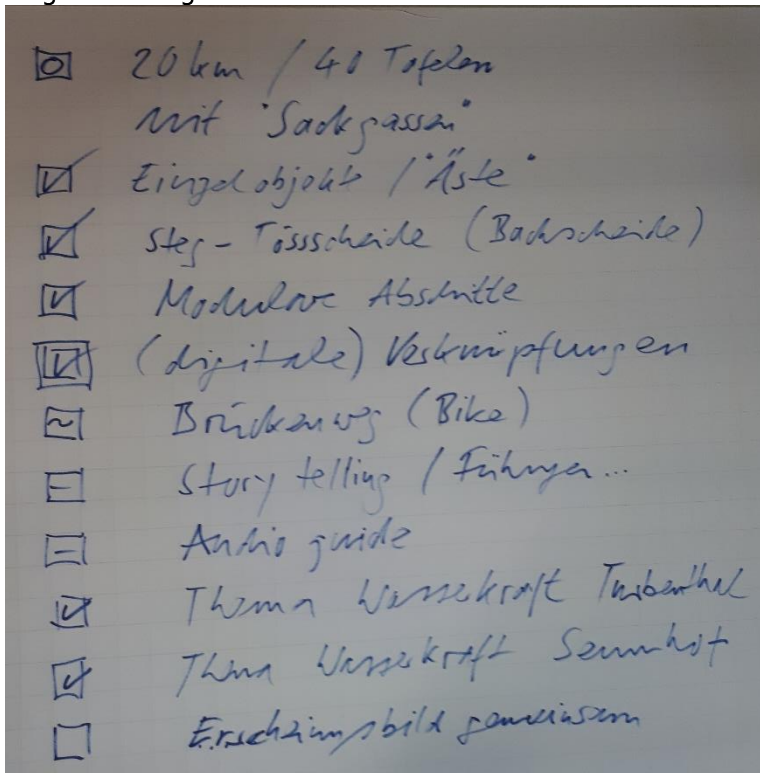 20 km / 40 Tafelen
mit "Sackgassen"
Einzelobjekt / "Äste"
Steg - Tössscheide (Bachscheide)
Modulare Abschnitte
(digitale) Verknüpfungen
Brückenweg (Bike)
Story telling / Führungen...
Audio guide
Thema Wasserkraft Turbenthal
Thema Wasserkraft Sennhof
Erscheinungsbild gemeinsam